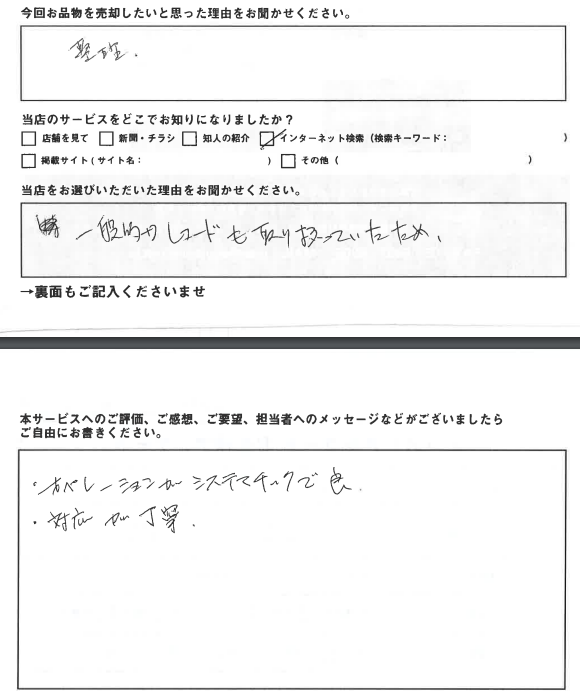 今回お品物を売却したいと思った理由をお聞かせください。
整理.
当店のサービスをどこでお知りになりましたか？
□ 店舗を見て □ 新聞・チラシ □ 知人の紹介 ☑ インターネット検索（検索キーワード： ）
□ 掲載サイト（サイト名： ） □ その他（ ）
当店をお選びいただいた理由をお聞かせください。
一般的なレコードも取り扱っていたため.
→裏面もご記入くださいませ
本サービスへのご評価、ご感想、ご要望、担当者へのメッセージなどがございましたら
ご自由にお書きください。
・オペレーションがシステマチックで良.
・対応が丁寧.